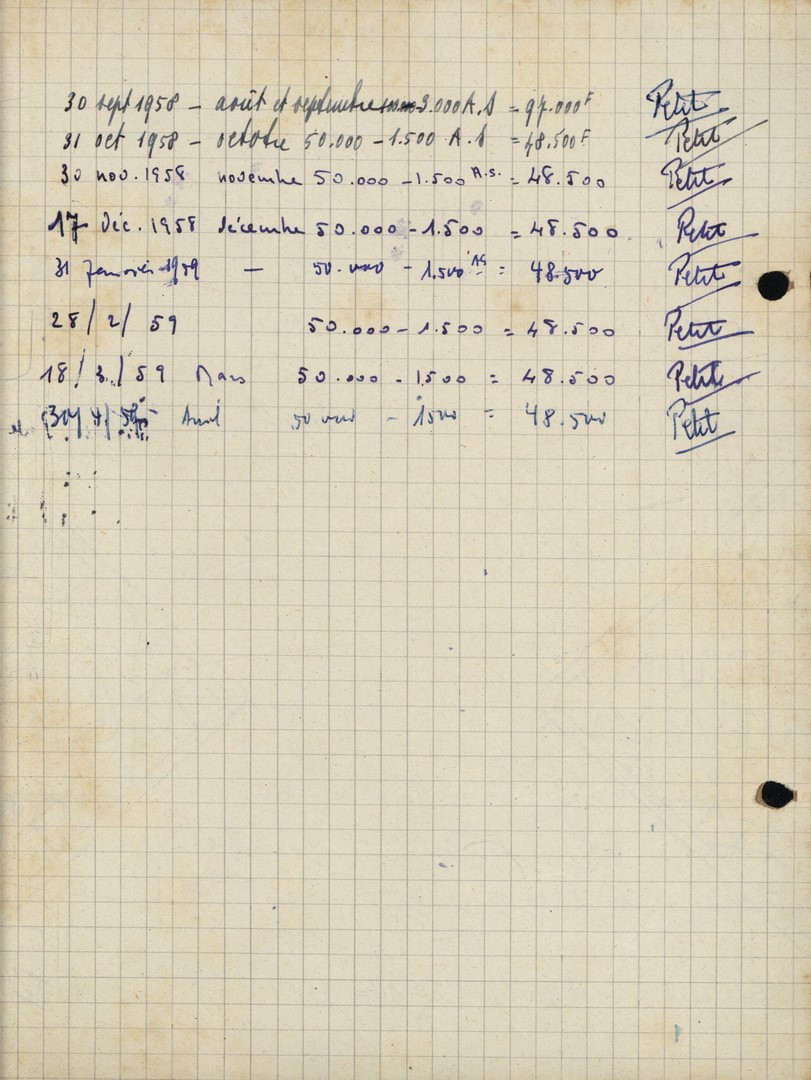 30 sept 1958 – août et septembre 3.000 A.S = 97.000F Petit
31 oct 1958 – octobre 50.000 – 1.500 A.S = 48.500F Petit
30 nov. 1958 novembre 50.000 – 1.500 A.S. = 48.500 Petit
17 déc. 1958 décembre 50.000 – 1.500 = 48.500 Petit
31 janvier 1959 — 50.000 – 1.500 AS = 48.500 Petit
28/2/59 50.000 – 1.500 = 48.500 Petit
18/3/59 Mars 50.000 – 1.500 = 48.500 Petit
30/4/59 Avril 50 000 – 1500 = 48.500 Petit